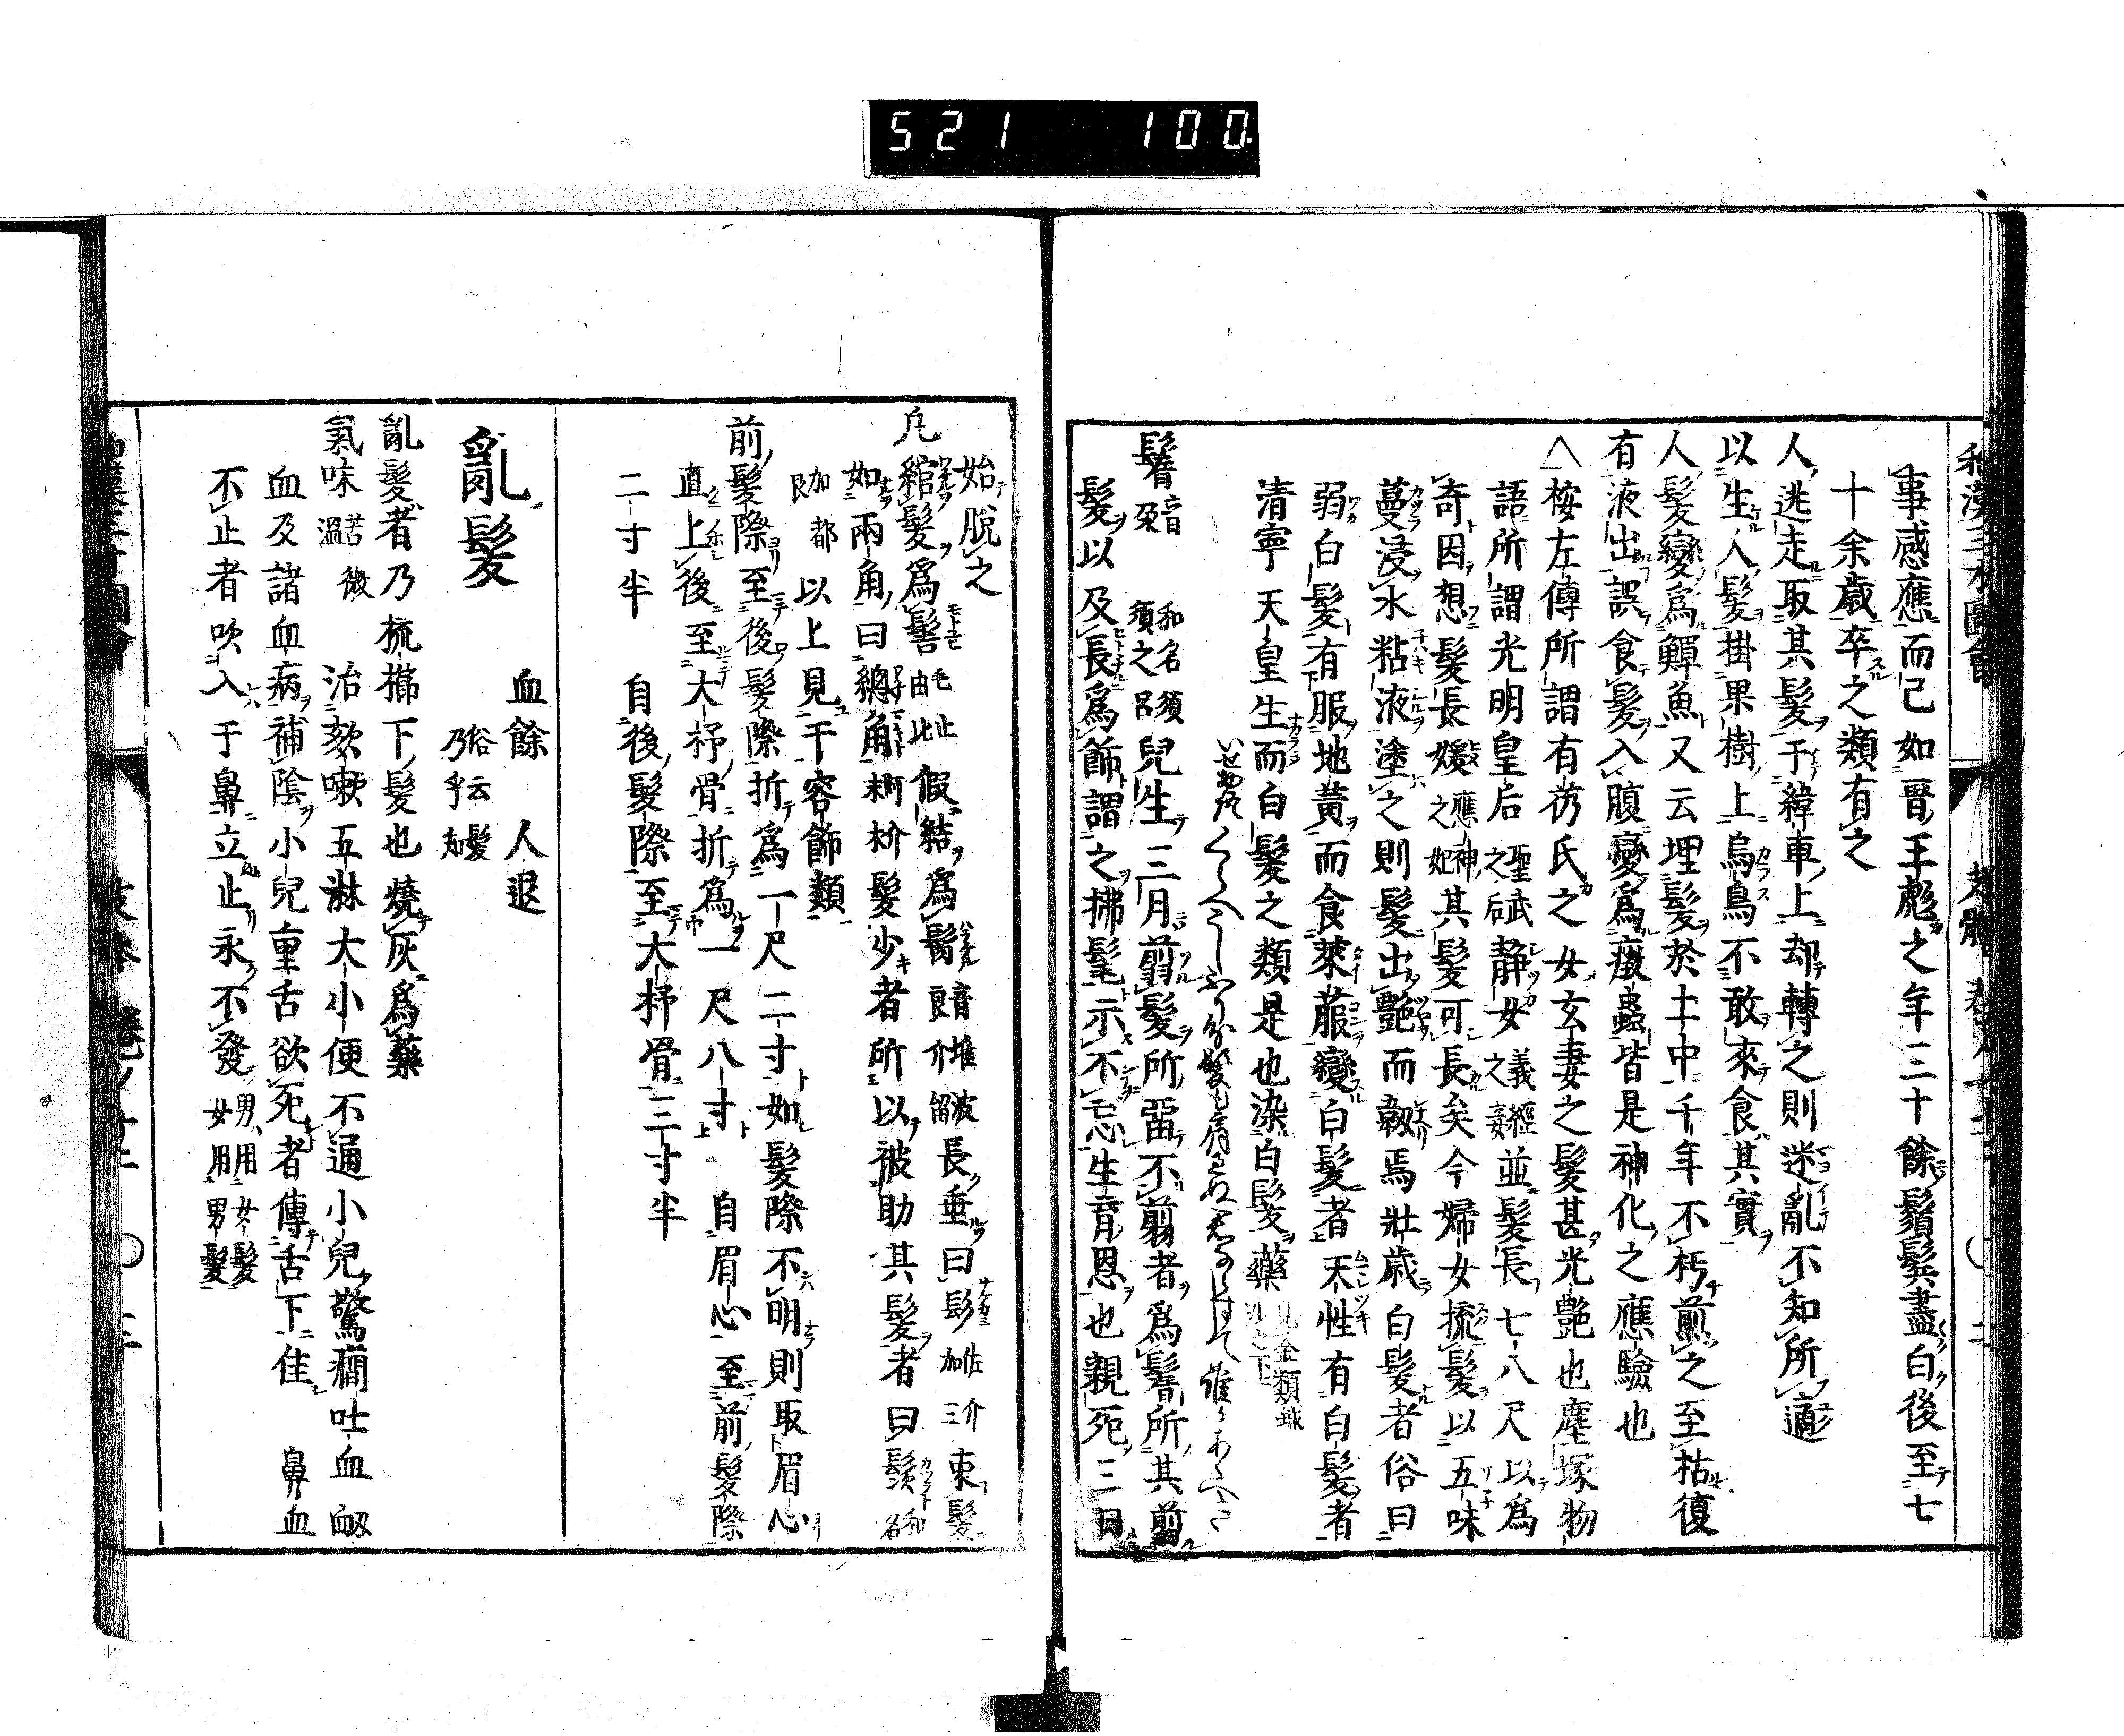 521 100
和漢三才圖會 支體 ○ 二
事感應而已如晋王彪之年三十餘鬚鬂盡白後至七
十余歳卒之類有之
人逃走取其髮于緯車上却轉之則迷亂不知所適
以生人髮掛果樹上烏鳥不敢來食其實
人髮變爲鱓魚又云埋髮於土中千年不朽煎之至枯復
有液出誤食髮入腹變爲癥蟲皆是神化之應驗也
△桉左傳所謂有仍氏之女玄妻之髮甚光艶也塵塚物
語所謂光明皇后聖武之后靜女義經之妾並髮長七八尺以爲
奇因想髮長媛應神之妃其髮可長矣今婦女搽髮以五味
蔓浸水粘液塗之則髮出艶而韌焉壯歳白髮者俗曰
弱白髮有服地黃而食萊菔變白髮者天性有白髮者
清寧天皇生而白髮之類是也染白髮藥見金類鐵
いせ物語 くらへこしふり分髮も肩過ぬ君ならすして誰かあくへき
鬌音朶 和名須須之呂 兒生三月剪髮所畱不剪者爲鬌所其剪
髮以及長爲飾謂之拂髦示不忘生育恩也親死三日
始脫之
凡綰髮爲髻毛止由比假結爲鬄音堆波介良留長垂曰髟佐介加三束髮
如兩角曰總角髮少者所以被助其髮者曰鬘和名
加都良 以上見于容飾類
前髮際至後髮際折爲一尺二寸如髮際不明則取眉心
直上後至大杼骨折爲一尺八寸 自眉心至前髮際
二寸半 自後髮際至大杼骨三寸半
亂髮 血餘 人退
俗云髮乃乎知
亂髮者乃梳櫛下髮也燒灰爲藥
氣味苦微溫 治欬嗽五淋大小便不通小兒驚癎吐血衂
血及諸血病補陰小兒重舌欲死者傳舌下佳 鼻血
不止者吹入于鼻立止永不發男用女髮女用男髮
○ 三